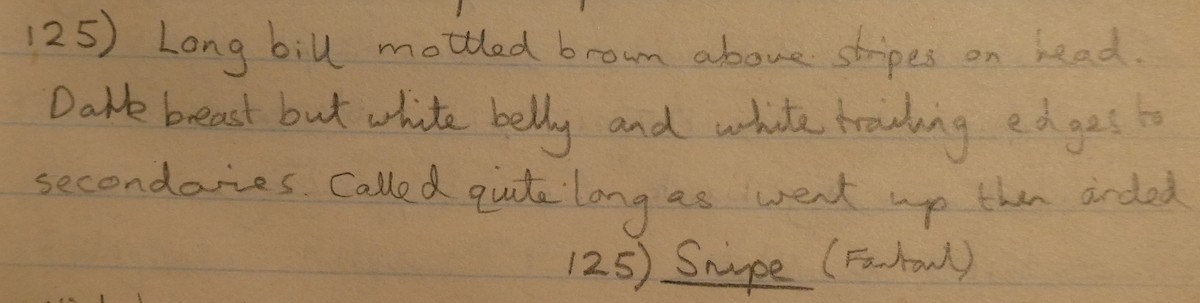 125) Long bill mottled brown above stripes on head.
Dark breast but white belly and white trailing edges to
secondaries. Called quite long as went up then circled
125) Snipe (Fantail)